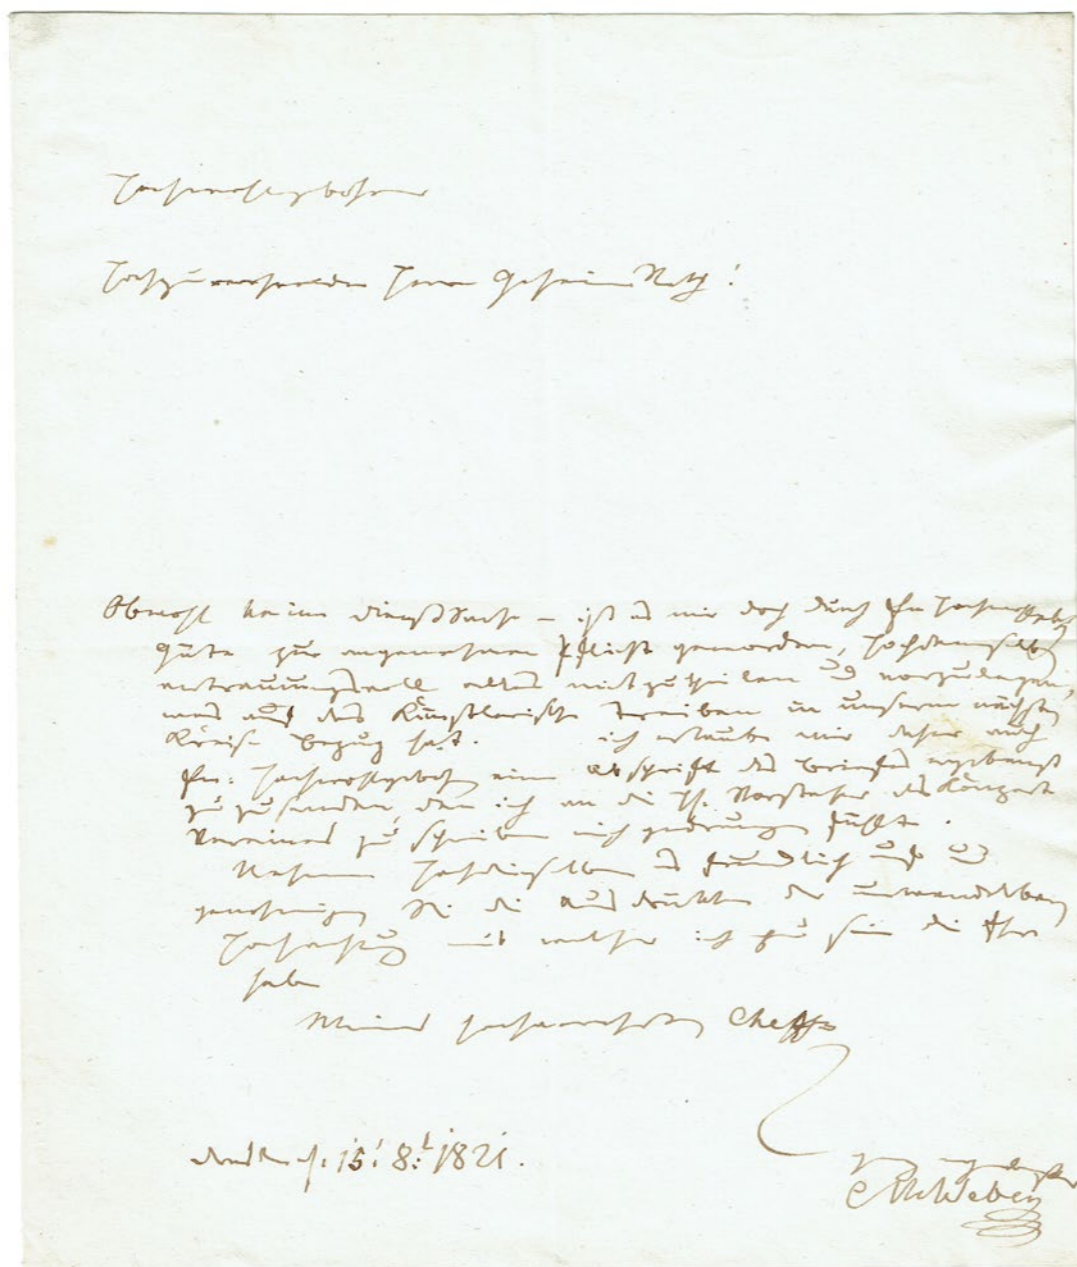 Hochwohlgebohrner
Hochzuverehrender Herr Geheime Rath!
Obwohl keine Dienstsache – ist es mir doch durch Ew Hochwohlgeb:
Güte zur angenehmen Pflicht geworden, Hochdemselben
vertrauungsvoll alles mitzutheilen und vorzulegen,
was auf das künstlerische Treiben in unserm nächsten
Kreise Bezug hat. ich erlaube mir daher auch
Ew: Hochwohlgebohr eine Abschrift des Briefes ergebenst
zu zu senden, den ich an die H. Vorsteher des Konzert
Vereines zu schreiben mich gedrungen fühlte.
Nehmen Hochdieselben es freundlich auf und
genehmigen Sie die Ausdrükke der unwandelbaren
Hochachtung mit welcher ich zu sein die Ehre
habe
Meines hochverehrten Cheffs
Dresden d. 15t 8b 1821.
ganz ergebenster
CMvWeber